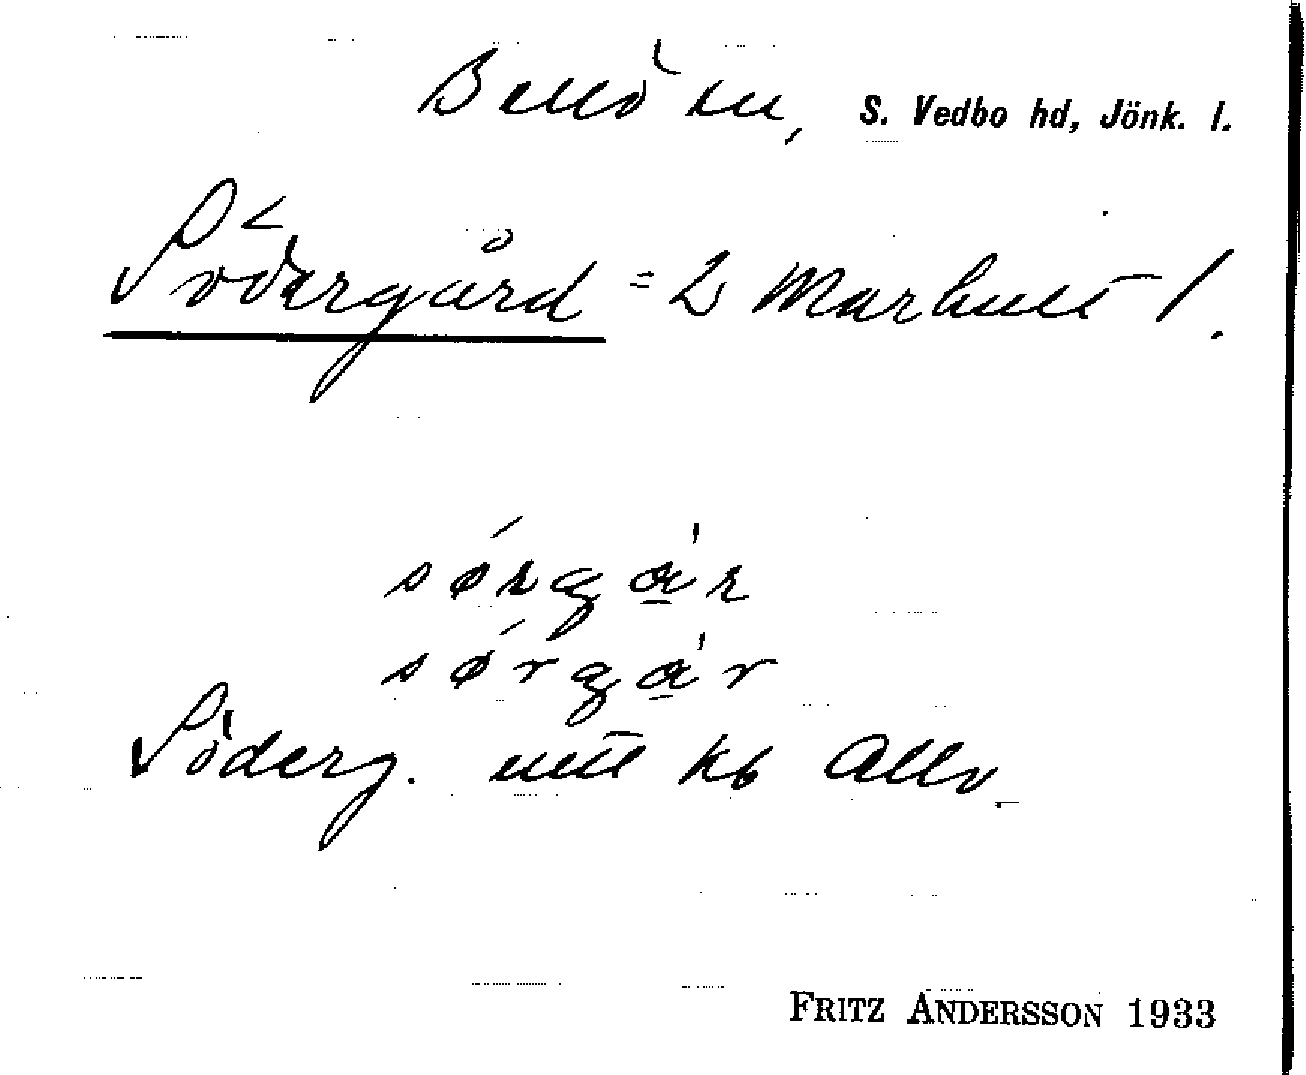 Bellö sn, S. Vedbo hd, Jönk. l.
Södergård = 2 Marhult 1.
sørgạr
sørgạr
Söderg. uttl kb Allm.
FRITZ ANDERSSON 1933